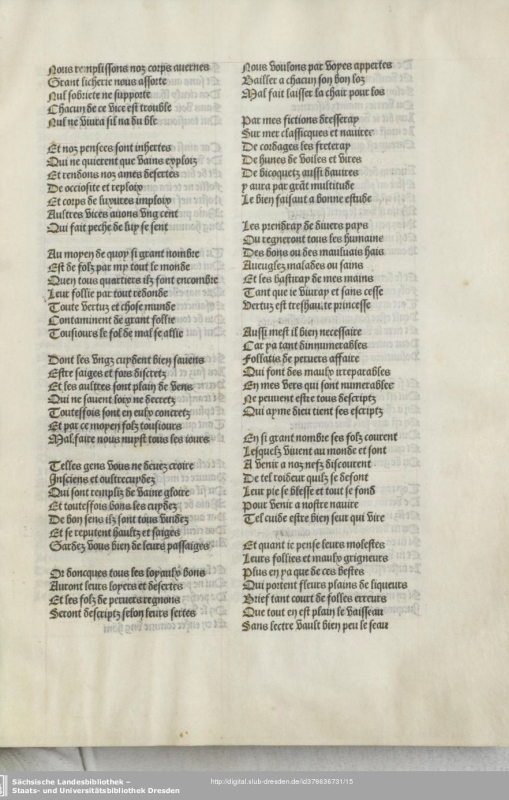 Nous remplissons noz corps auernes
Grant licherie nous assorte
Nul sobriete ne supporte
Chacun de ce vice est trouble
Nul ne viura sil na du ble
Et noz pensees sont inhertes
Qui ne quierent que vains exploiz
Et rendons noz ames desertes
De occiosite et reploiz
Et corps de luxures imploiz
Aultres vices auons vng cent
Qui fait peche de luy se sent
Au moyen de quoy si grant nombre
Est de folz par my tout le monde
Quen tous quartiers ilz font encombre
Leur follie par tout redonde
Toute vertuz et chose munde
Contaminent de grant follie
Tousiours le fol de mal se allie
Dont les vngz cuydent bien sauens
Estre saiges et fors discretz
Et les aultres sont plain de vens
Qui ne sauent loix ne decretz
Toutesfois sont en eulx concretz
Et par ce moyen folz tousiours
Mal faire nous nuyst tous les iours
Telles gens vous ne deuez croire
Insciens et oultrecuydez
Qui sont rempliz de vaine gloire
Et toutesfois bons les cuydez
De bon sens ilz sont tous vuidez
Et se reputent haultz et saiges
Gardez vous bien de leurs passaiges
Or doncques tous les loyaulx bons
Auront leurs loyers et desertes
Et les folz de peruers regnons
Seront descriptz selon leurs sertes
Nous voulons par voyes appertes
Bailler a chacun son bon loz
Mal fait laisser la chair pour los
Par mes fictions dresseray
Sur mer classicques et nauires
De cordages les freteray
De hunes de voiles et vires
De bicoquetz aussi dauires
y aura par grāt multitude
Le bien faisant a bonne estude
Les prendray de diuers pays
Ou regneront tous les humains
Des bons ou des mauluais hais
Aueuglez malades ou sains
Et les bastiray de mes mains
Tant que ie viuray et sans cesse
Vertuz est treshaulte princesse
Aussi mest il bien necessaire
Car ya tant dinnumerables
Follatis de peruers affaire
Qui font des maulx irreparables
En mes vers qui sont numerables
Ne peuuent estre tous descriptz
Qui ayme dieu tient ses escriptz
En si grant nombre ses folz courent
Lesquelz viuent au monde et sont
A venir a noz nefz discourent
De tel roideur quilz se desont
Leur pie se blesse et tout se fond
Pour venir a nostre nauire
Tel cuide estre bien seur qui vire
Et quant ie pense leurs molestes
Leurs follies et maulx grigneurs
Plus en ya que de ces bestes
Qui portent fleurs plaines de liqueurs
Brief tant court de folles erreurs
Que tout en est plain le vaisseau
Sans lectre vault bien peu le seau
Sächsische Landesbibliothek –
Staats- und Universitätsbibliothek Dresden
http://digital.slub-dresden.de/id378636731/15